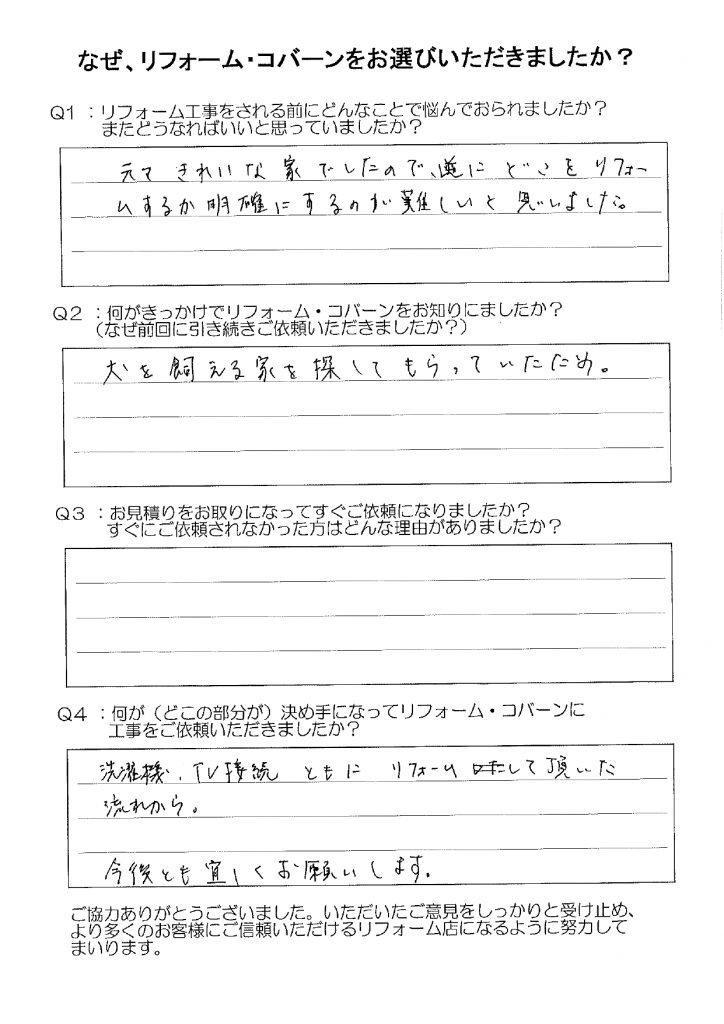 なぜ、リフォーム・コバーンをお選びいただきましたか？
Q1 ：リフォーム工事をされる前にどんなことで悩んでおられましたか？
またどうなればいいと思っていましたか？
元々きれいな家でしたので、逆にどこをリフォー
ムするか明確にするのが難しいと思いました。
Q2 ：何がきっかけでリフォーム・コバーンをお知りにましたか？
（なぜ前回に引き続きご依頼いただきましたか？）
犬を飼える家を探してもらっていたため。
Q3 ：お見積りをお取りになってすぐご依頼になりましたか？
すぐにご依頼されなかった方はどんな理由がありましたか？
Q4 ：何が（どこの部分が）決め手になってリフォーム・コバーンに
工事をご依頼いただきましたか？
洗濯機、TV接続 ともに リフォーム して頂いた
流れから。
今後とも宜しくお願いします。
ご協力ありがとうございました。いただいたご意見をしっかりと受け止め、
より多くのお客様にご信頼いただけるリフォーム店になるように努力して
まいります。